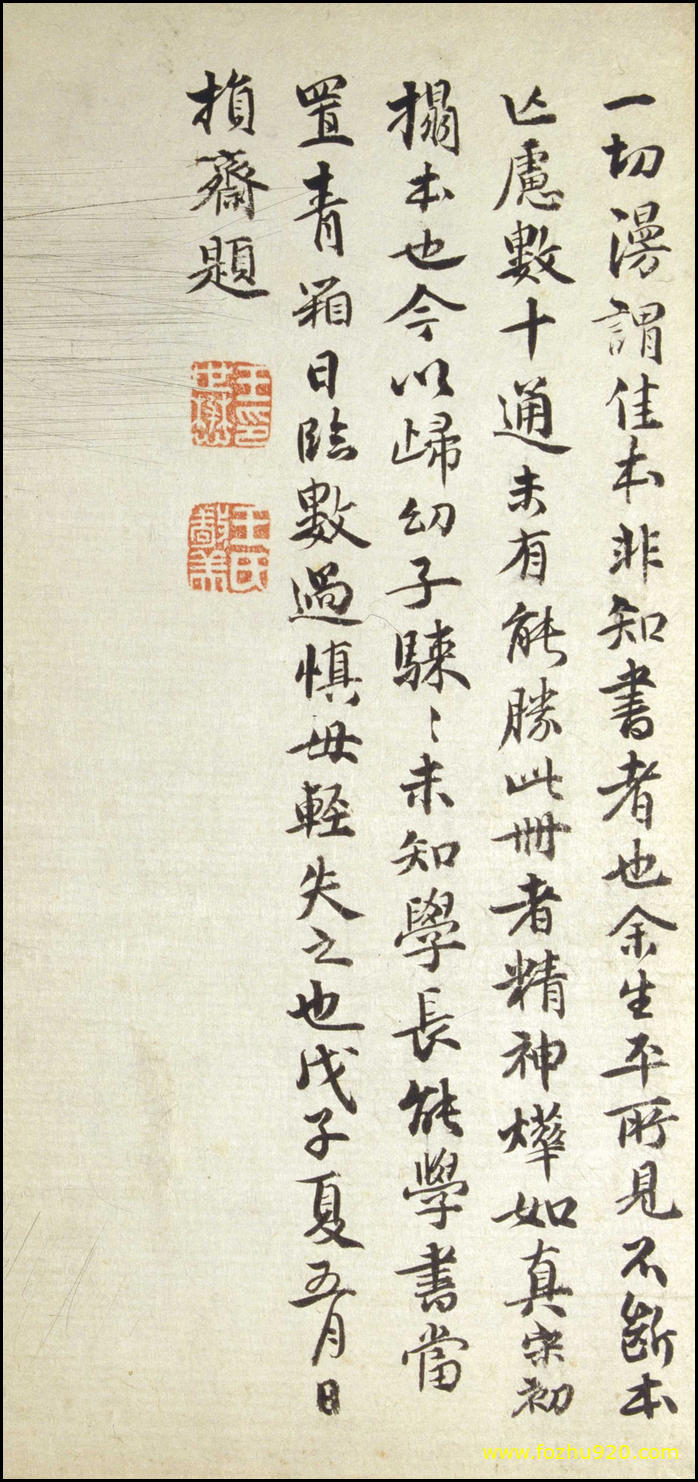 一切漫謂佳本非知書者也余生平所見不斷本
亡慮數十通未有能勝此冊者精神燁如真宋初
搨本也今以歸幼子騋〻未知學長能學書當
置青箱日臨數過慎毋輕失之也戊子夏五月日
損齋題
王印世懋
王氏敬美
www.fozhu920.com